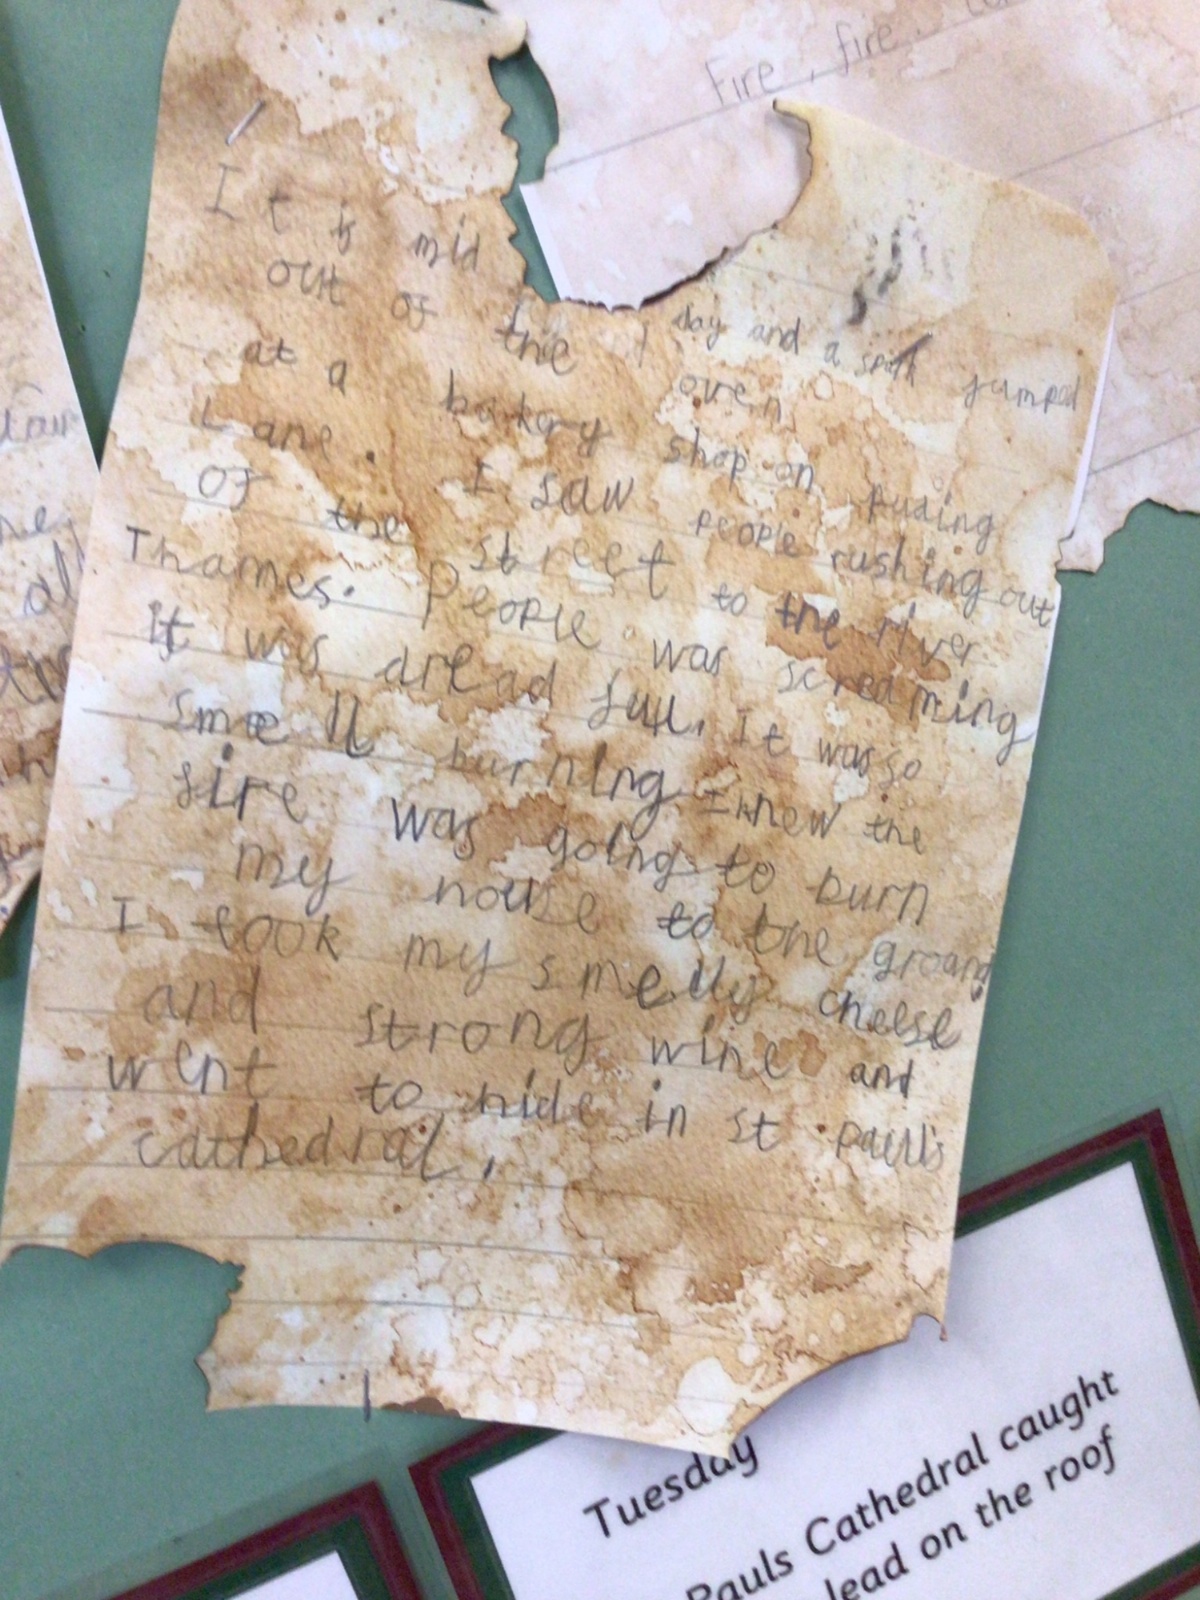 Fire, fire.
It is mid day and a spark jumped
out of the oven
at a bakery shop on puding
Lane. I saw people rushing out
of the street to the river
Thames. People was screaming
it was dread full. It was so
smell burning I knew the
fire was going to burn
my house to the ground
I took my smelly cheese
and strong wine and
went to hide in st paul's
cathedral.
Tuesday
Pauls Cathedral caught
lead on the roof